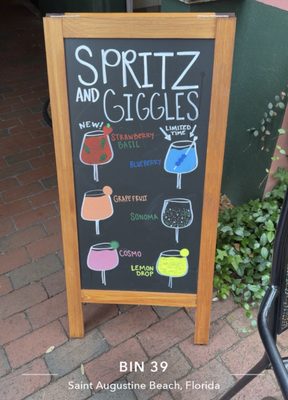 SPRITZ
AND GIGGLES
NEW!
STRAWBERRY
BASIL
LIMITED
TIME
BLUEBERRY
GRAPEFRUIT
SONOMA
COSMO
LEMON
DROP
BIN 39
Saint Augustine Beach, Florida